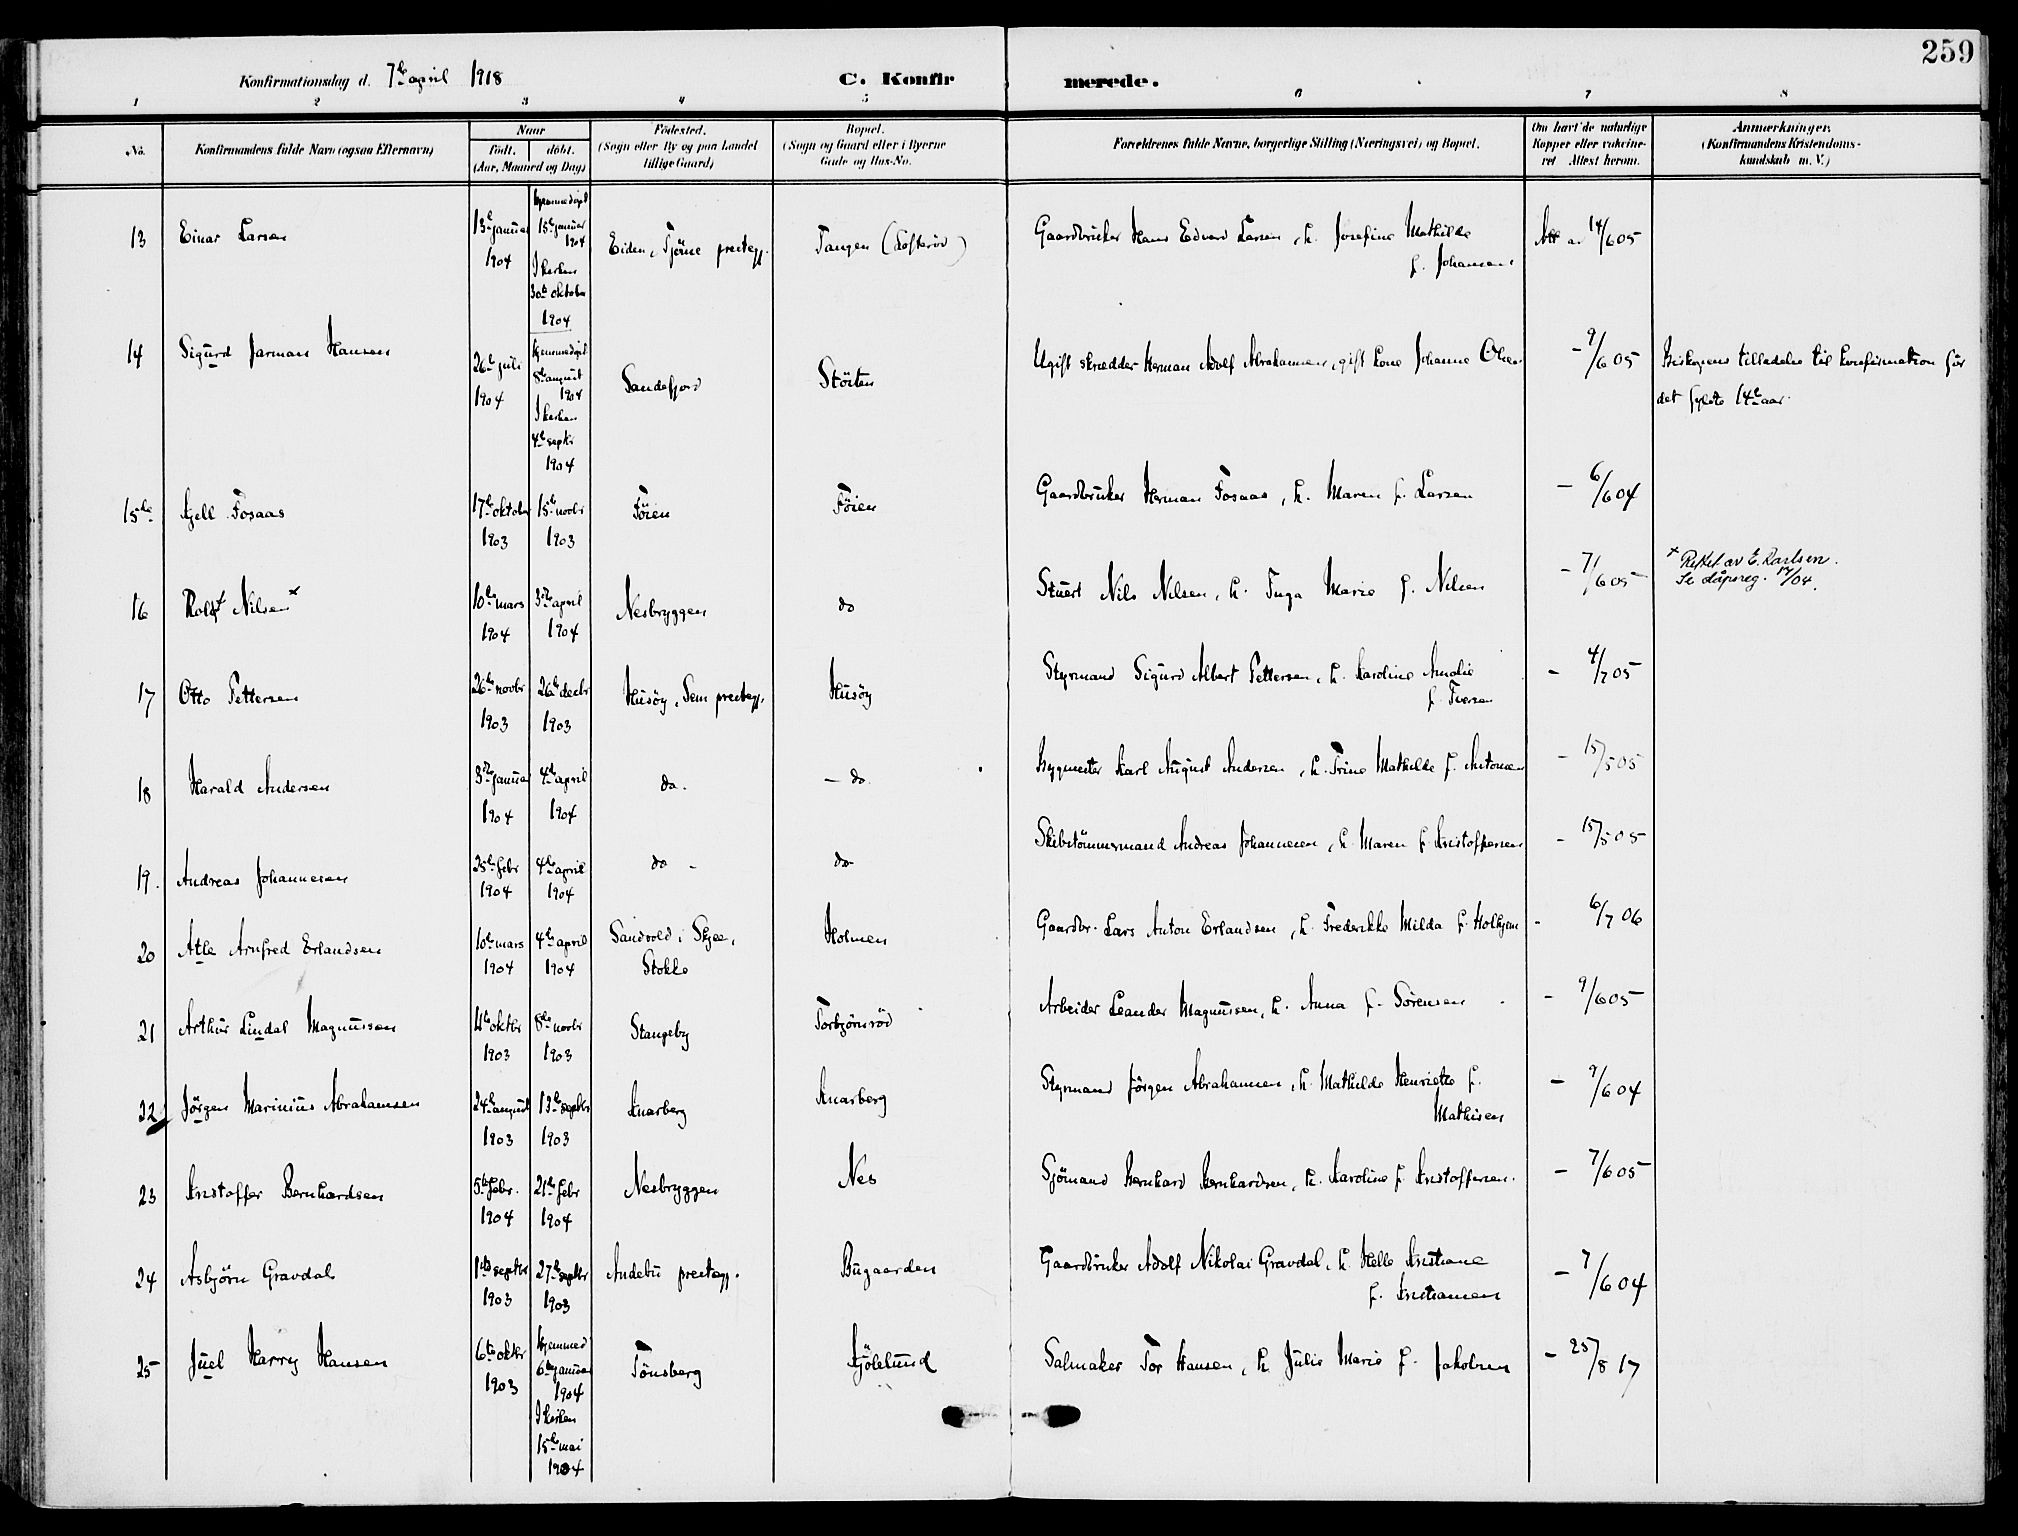 259
Konfirmationsdag d. 7de april 1918 C. Konfirmerede.
1 2 3 4 5 6 7 8
No. Konfirmandens fulde Navn (ogsaa Efternavn) Naar født. døbt. (Aar, Maaned og Dag) Fødested. (Sogn eller By og paa Landet tillige Gaard) Bopæl. (Sogn og Gaard eller i Byerne Gade og Hus-No. Forældrenes fulde Navne, borgerlige Stilling (Næringsvei) og Bopæl. Om havt de naturlige Kopper eller vakcineret Attest herom. Anmærkninger. (Konfirmandens Kristendomskundskab m. V.)
13 Einar Larsen 13de januar 1904 hjemmedøpt 15de januar 1904 I kirken 30te oktober 1904 Eiden, Tjöme prestegj. Tangen (Lofterød) Gaardbruker Hans Edvard Larsen, h. Josefine Mathilde f. Johansen Att av 14/6 05
14 Sigurd Jarman Hansen 26de juli 1904 hjemmedøpt 8de august 1904 I kirken 4de septbr 1904 Sandefjord Stöiten Ugift skrædder Herman Adolf Abrahamsen, gift kone Johanne Olsen - 9/6 05 Biskopens tilladelse til konfirmation før det fyldte 14de aar.
15de Kjell Fosaas 17de oktober 1903 15de novbr 1903 Föien Föien Gaardbruker Herman Fosaas, h. Maren f. Larsen - 6/6 04
16 Rolf Nilsen x 10de mars 1904 3die april 1904 Nesbryggen do Stuert Nils Nilsen, h. Inga Marie f. Nilsen - 7/6 05 x Rettet av E. Karlsen. Se dåpsreg. 17/04.
17 Otto Pettersen 26de novbr 1903 26de decbr 1903 Husöy, Sem prestegj. Husöy Styrmand Sigurd Albert Pettersen, h. Karoline Amalie f. Iversen - 4/7 05
18 Harald Andersen 3die januar 1904 4de april 1904 do. - do. Bygmester Karl August Andersen, h. Trine Mathilde f. Antonsen - 15/5 05
19. Andreas Johannesen 25de febr 1904 4de april 1904 do - do Skibstömmermand Andreas Johannesen, h. Maren f. Kristoffersen - 15/5 05
20 Atle Arnfred Erlandsen 10de mars 1904 4de april 1904 Sandvold i Skjee, Stokke Holmen Gaardbr. Lars Anton Erlandsen, h. Frederikke Milda f. - 6/7 06
21 Arthur Lindal Magnussen 4de oktbr 1903 8de novbr 1903 Stangeby Torbjörnröd Arbeider Leander Magnussen, h. Anna f. Sörensen - 9/6 05
22 Jörgen Marinius Abrahamsen 24de august 1903 13de septbr 1903 Knarberg Knarberg Styrmand Jörgen Abrahamsen, h. Mathilde Henriette f. Mathisen - 9/6 04
23 Kristoffer Bernhardsen 5te febr. 1904 21de febr 1904 Nesbryggen Nes Sjömand Bernhard Bernhardsen, h. Karoline f. Kristoffersen. - 7/6 05
24 Asbjörn Gravdal 1ste septbr 1903 27de septbr 1903 Andebu prestegj. Bugaarden Gaardbruker Adolf Nikolai Gravdal, h. Helle Kristiane f. Kristiansen - 7/6 04
25 Juel Harry Hansen 6te oktbr 1903 hjemmed 6te januar 1904 I kirken 15de mai 1904 Tönsberg Kjölelund Salmaker Tor Hansen, h. Julie Marie f. Jakobsen - 25/8 17